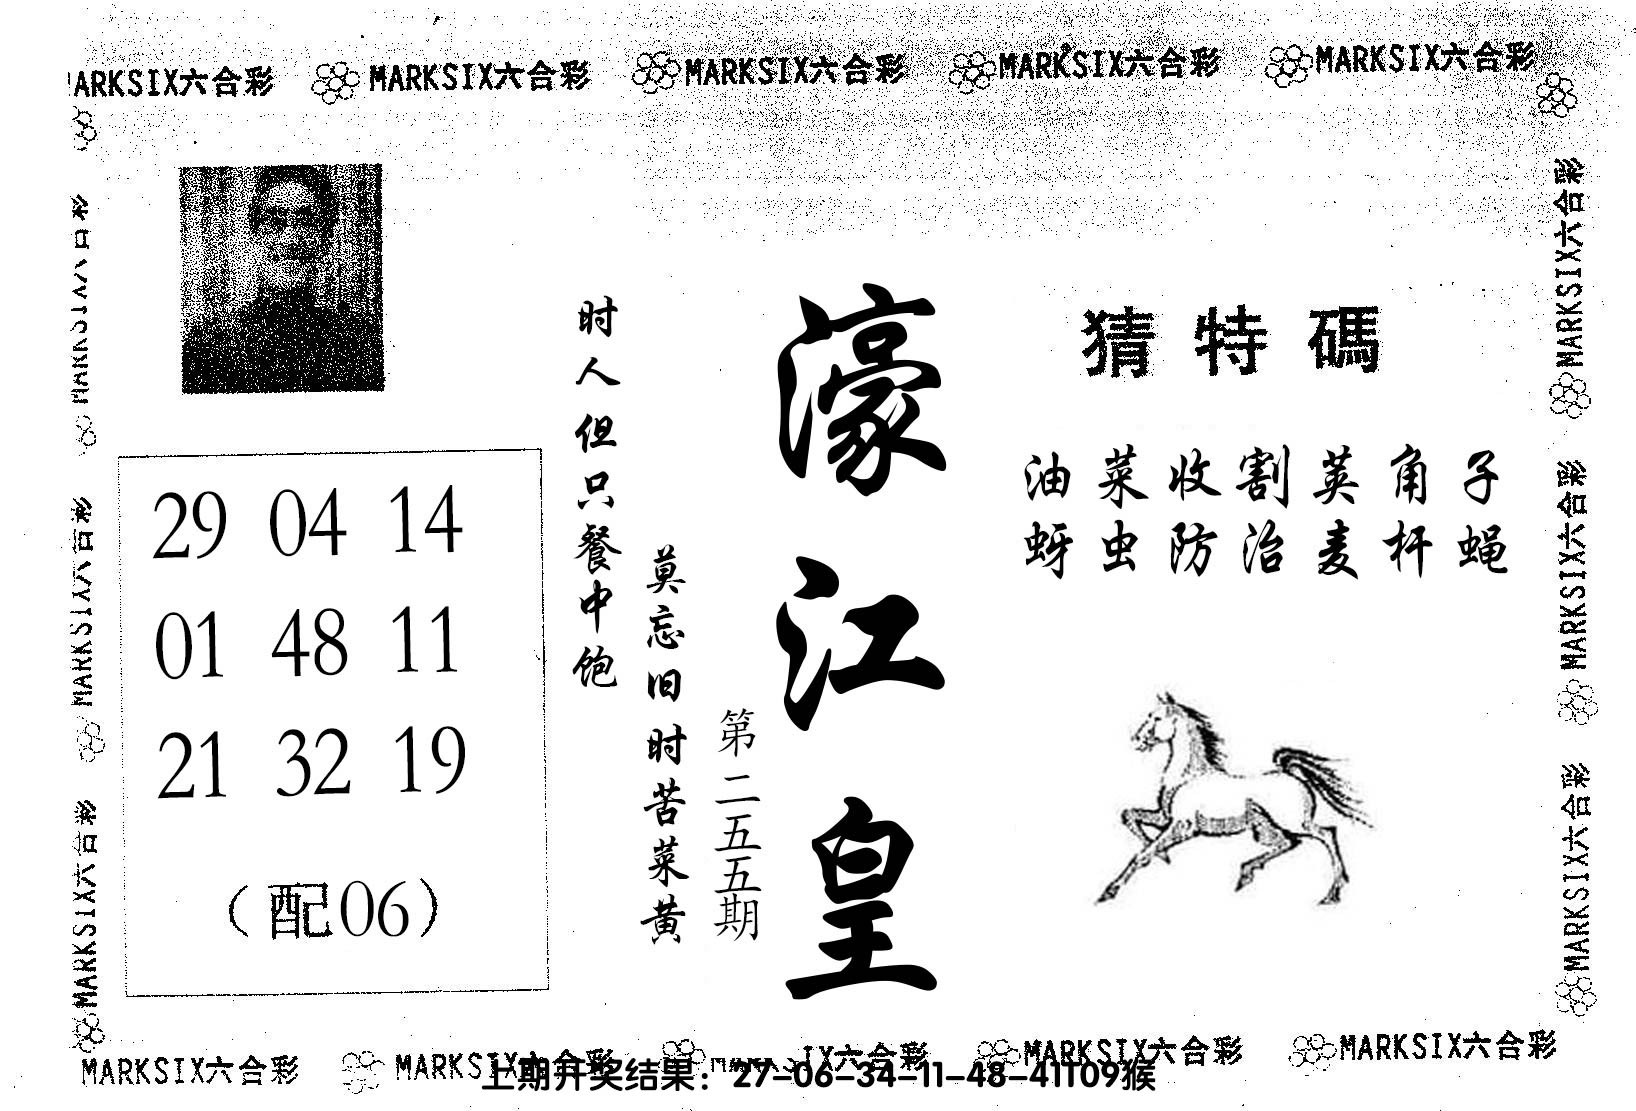 MARKSIX六合彩 MARKSIX六合彩 MARKSIX六合彩 MARKSIX六合彩 MARKSIX六合彩
猜特碼
油菜收割荚角子
蚜虫防治麦杆蝇
濠江皇
第二五五期
时人但只餐中饱
莫忘旧时苦菜黄
29 04 14
01 48 11
21 32 19
（配06）
MARKSIX六合彩
MARKSIX六合彩
MARKSIX六合彩
MARKSIX六合彩
MARKSIX六合彩
MARKSIX六合彩
MARKSIX六合彩 MARKSIX六合彩 IX六合彩 MARKSIX六合彩 MARKSIX六合彩
上期开奖结果：27-06-34-11-48-41T09猴